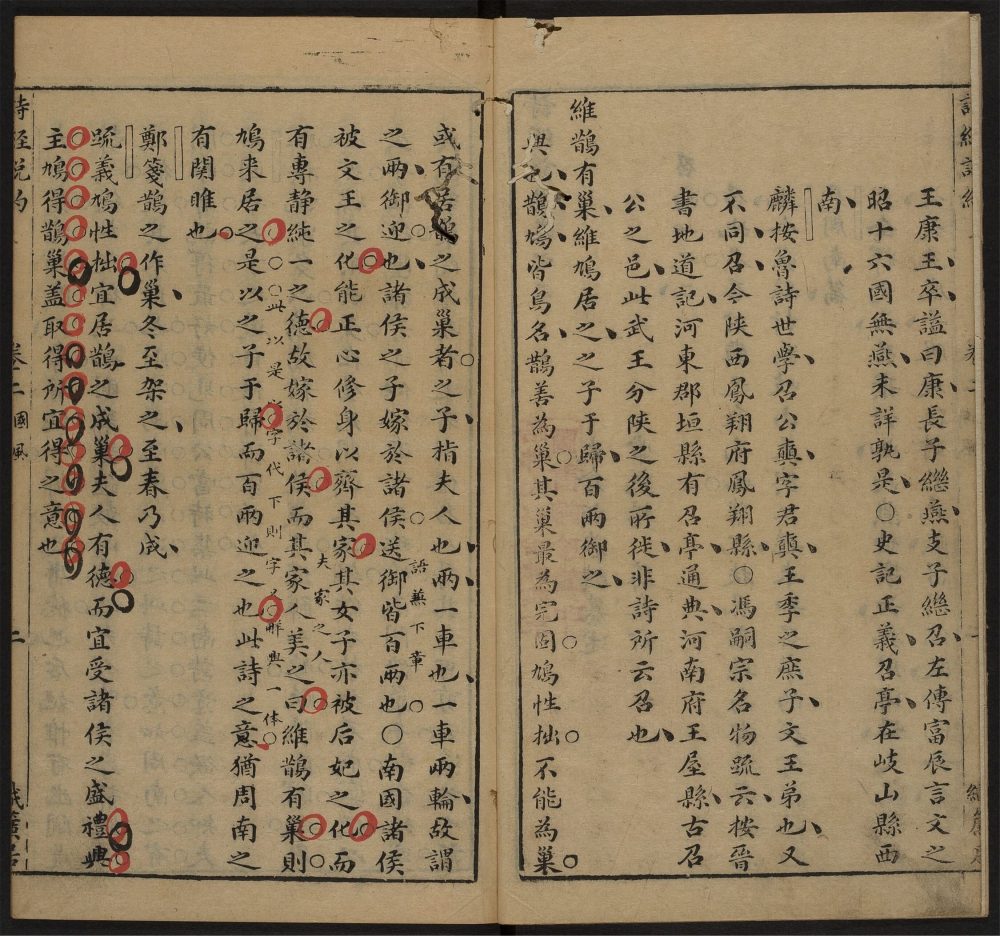 王康王卒謚曰康長子繼燕支子繼召左傳富辰言文之
昭十六國無燕未詳孰是○史記正義召亭在岐山縣西
南
麟按魯詩世學召公奭字君奭王季之庶子文王弟也又
不同召今陝西鳳翔府鳳翔縣○馮嗣宗名物疏云按晉
書地道記河東郡垣縣有召亭通典河南府王屋縣古召
公之邑此武王分陝之後所徙非詩所云召也
維鵲有巢維鳩居之之子于歸百兩御之
興也鵲鳩皆鳥名鵲善為巢其巢最為完固鳩性拙不能為巢
或有居鵲之成巢者之子指夫人也兩一車也一車兩輪故謂
之兩御迎也諸侯之子嫁於諸侯送御皆百兩也○南國諸侯
語蕪下章
被文王之化能正心修身以齊其家其女子亦被后妃之化而
夫家之人
有專静純一之德故嫁於諸侯而其家人美之曰維鵲有巢則
此以是字代下則字解與一体
鳩来居之是以之子于歸而百兩迎之也此詩之意猶周南之
有関雎也
鄭箋鵲之作巢冬至架之至春乃成
疏義鳩性拙宜居鵲之成巢夫人有德而宜受諸侯之盛禮興
主鳩得鵲巢盖取得所宜得之意也
詩經說約
卷二國風
二